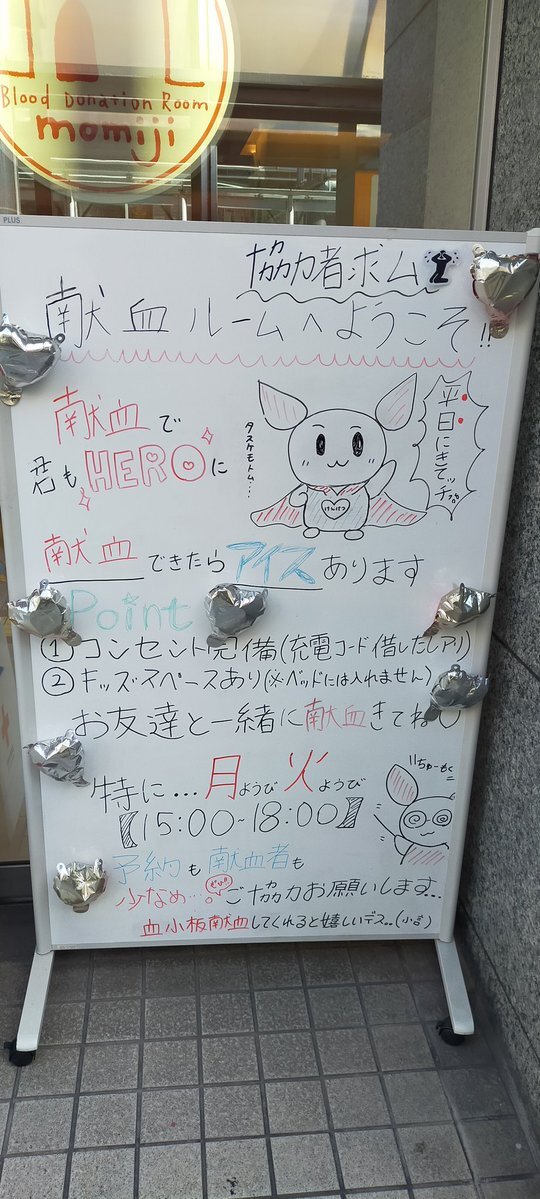 Blood Donation Room
momiji
PLUS
協力者求ム
献血ルームへようこそ!!
献血で
君もHEROに
タスケモトム…
平日にきてッチ
けんけつ
献血できたらアイスあります
Point
①コンセント完備(充電コード貸しだしアリ)
②キッズスペースあり(※ベッドには入れません)
お友達と一緒に献血きてね
特に…月ようび火ようび
【15:00~18:00】
ちゅーもく
予約も献血者も
少なめ…。ぜひ!ご協力お願いします…
血小板献血してくれると嬉しいデス..(小言)